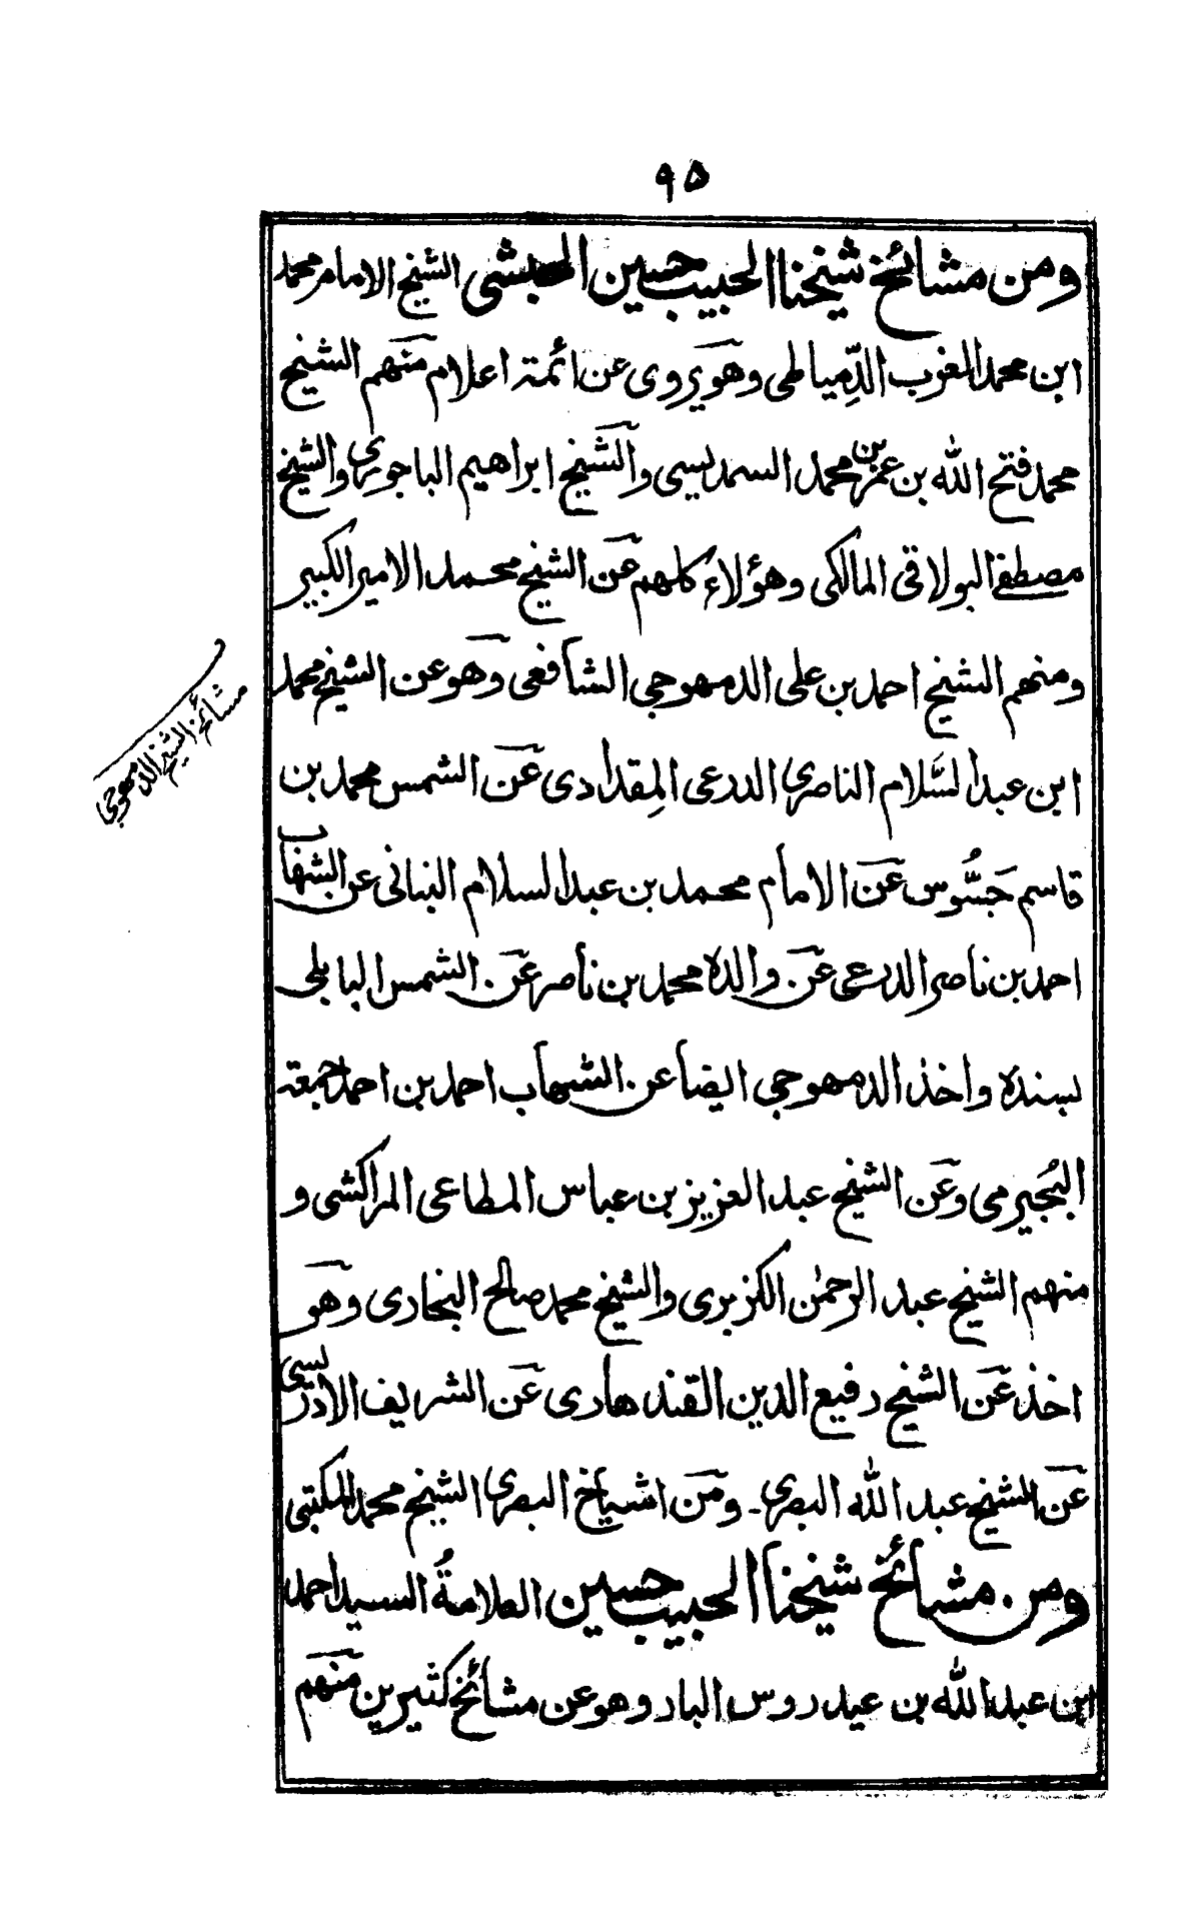 ٩٥
ومن مشائخ شيخنا الحبيب حسين الحبشى الشيخ الامام محمد
ابن محمد العزب الدِّمياطى وهو يروى عن ائمة اعلام منهم الشيخ
محمد فتح الله بن عمر بن محمد السمديسى والشيخ ابراهيم الباجورى والشيخ
مصطفى البولاقى المالكى وهؤلاء كلهم عن الشيخ محمد الامير الكبير
ومنهم الشيخ احمد بن على الدمهوجى الشافعى وهو عن الشيخ محمد
مشائخ الشيخ الدمهوجى
ابن عبد السَّلام الناصرى الدرعى المِقدادى عن الشمس محمد بن
قاسم جَسُّوس عن الامام محمد بن عبد السلام البنانى عن الشهاب
احمد بن ناصر الدرعى عن والده محمد بن ناصر عن الشمس البابلى
بسنده واخذ الدمهوجى ايضا عن الشهاب احمد بن احمد جمعة
البُجيرمى وعن الشيخ عبد العزيز بن عباس المطاعى المراكشى و
منهم الشيخ عبد الرحمٰن الكزبرى والشيخ محمد صالح البخارى وهو
اخذ عن الشيخ رفيع الدين القندهارى عن الشريف الادريسى
عن الشيخ عبد الله البصرى ـ ومن اشياخ البصرى الشيخ محمد المكتبى
ومن مشائخ شيخنا الحبيب حسين العلامةُ السيد احمد
ابن عبد الله بن عيدروس البار وهو عن مشائخ كثيرين منهم